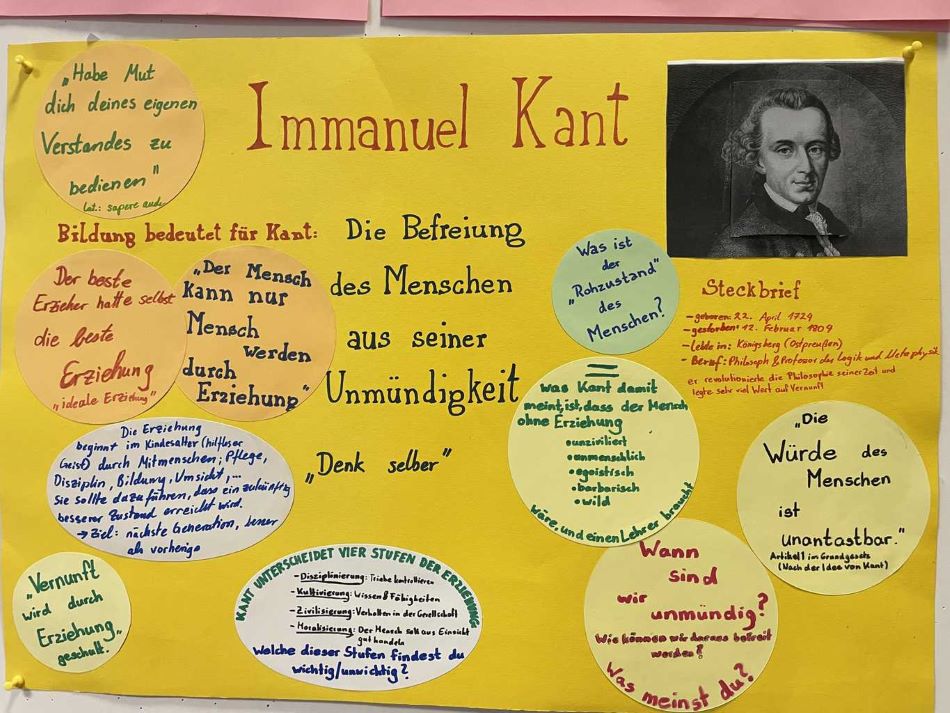 „Habe Mut
dich deines eigenen
Verstandes zu
bedienen"
Lat.: sapere aude
Immanuel Kant
Bildung bedeutet für Kant:
Die Befreiung
des Menschen
aus seiner
Unmündigkeit
„Denk selber"
Der beste
Erzieher hatte selbst
die beste
Erziehung
„ideale Erziehung"
„Der Mensch
kann nur
Mensch
werden
durch
Erziehung"
Die Erziehung
beginnt im Kindesalter (hilfloser
Geist) durch Mitmenschen; Pflege,
Disziplin, Bildung, Umsicht,...
Sie sollte dazu führen, dass ein zukünftig
besserer Zustand erreicht wird.
→ Ziel: nächste Generation, besser
als vorherige
„Vernunft
wird durch
Erziehung"
geschult.
KANT UNTERSCHEIDET VIER STUFEN DER ERZIEHUNG
- Disziplinierung: Triebe kontrollieren
- Kultivierung: Wissen & Fähigkeiten
- Zivilisierung: Verhalten in der Gesellschaft
- Moralisierung: Der Mensch soll aus Einsicht
gut handeln
Welche dieser Stufen findest du
wichtig/unwichtig?
Was ist
der
„Rohzustand"
des
Menschen?
=
was Kant damit
meint, ist, dass der Mensch
ohne Erziehung
• unziviliert
• unmenschlich
• egoistisch
• barbarisch
• wild
wäre, und einen Lehrer braucht
Steckbrief
- geboren: 22. April 1724
- gestorben: 12. Februar 1809
- lebte in: Königsberg (Ostpreußen)
- Beruf: Philosoph & Professor der Logik und Metaphysik
er revolutionierte die Philosophie seiner Zeit und
legte sehr viel Wert auf Vernunft
„Die
Würde des
Menschen
ist
unantastbar."
Artikel 1 im Grundgesetz
(Nach der Idee von Kant)
Wann
sind
wir
unmündig?
Wie können wir daraus befreit
werden?
Was meinst du?